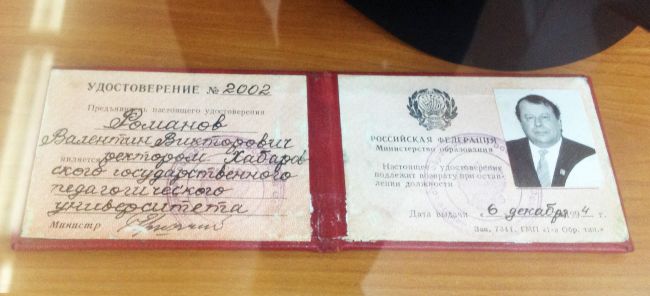 УДОСТОВЕРЕНИЕ № 2002
Предъявитель настоящего удостоверения
Романов
Валентин Викторович
является ректором Хабаров
ского государственного
педагогического
университета
Министр
РОССИЙСКАЯ ФЕДЕРАЦИЯ
Министерство образования
Настоящее удостоверение
подлежит возврату при остав-
лении должности
Дата выдачи 6 декабря 1994 г.
Зак. 7341. ГМП «1-я Обр. тип.»